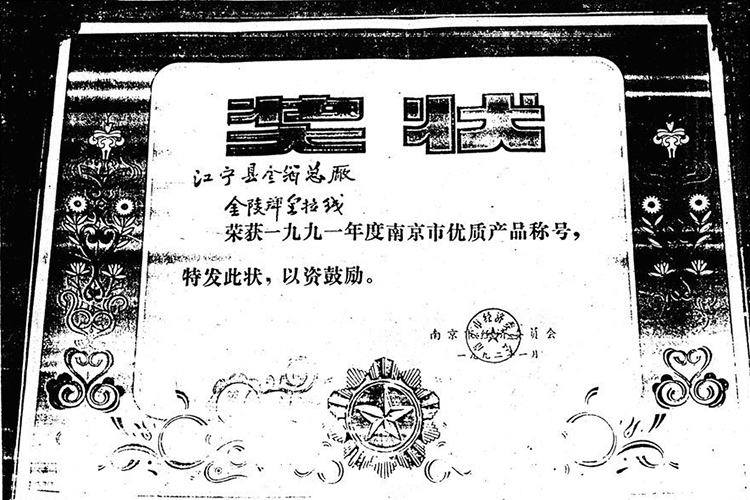 奖状
江宁县金箔总厂
金陵牌金拉线
荣获一九九一年度南京市优质产品称号，
特发此状，以资鼓励。
南京市经济委员会
一九九二年一月